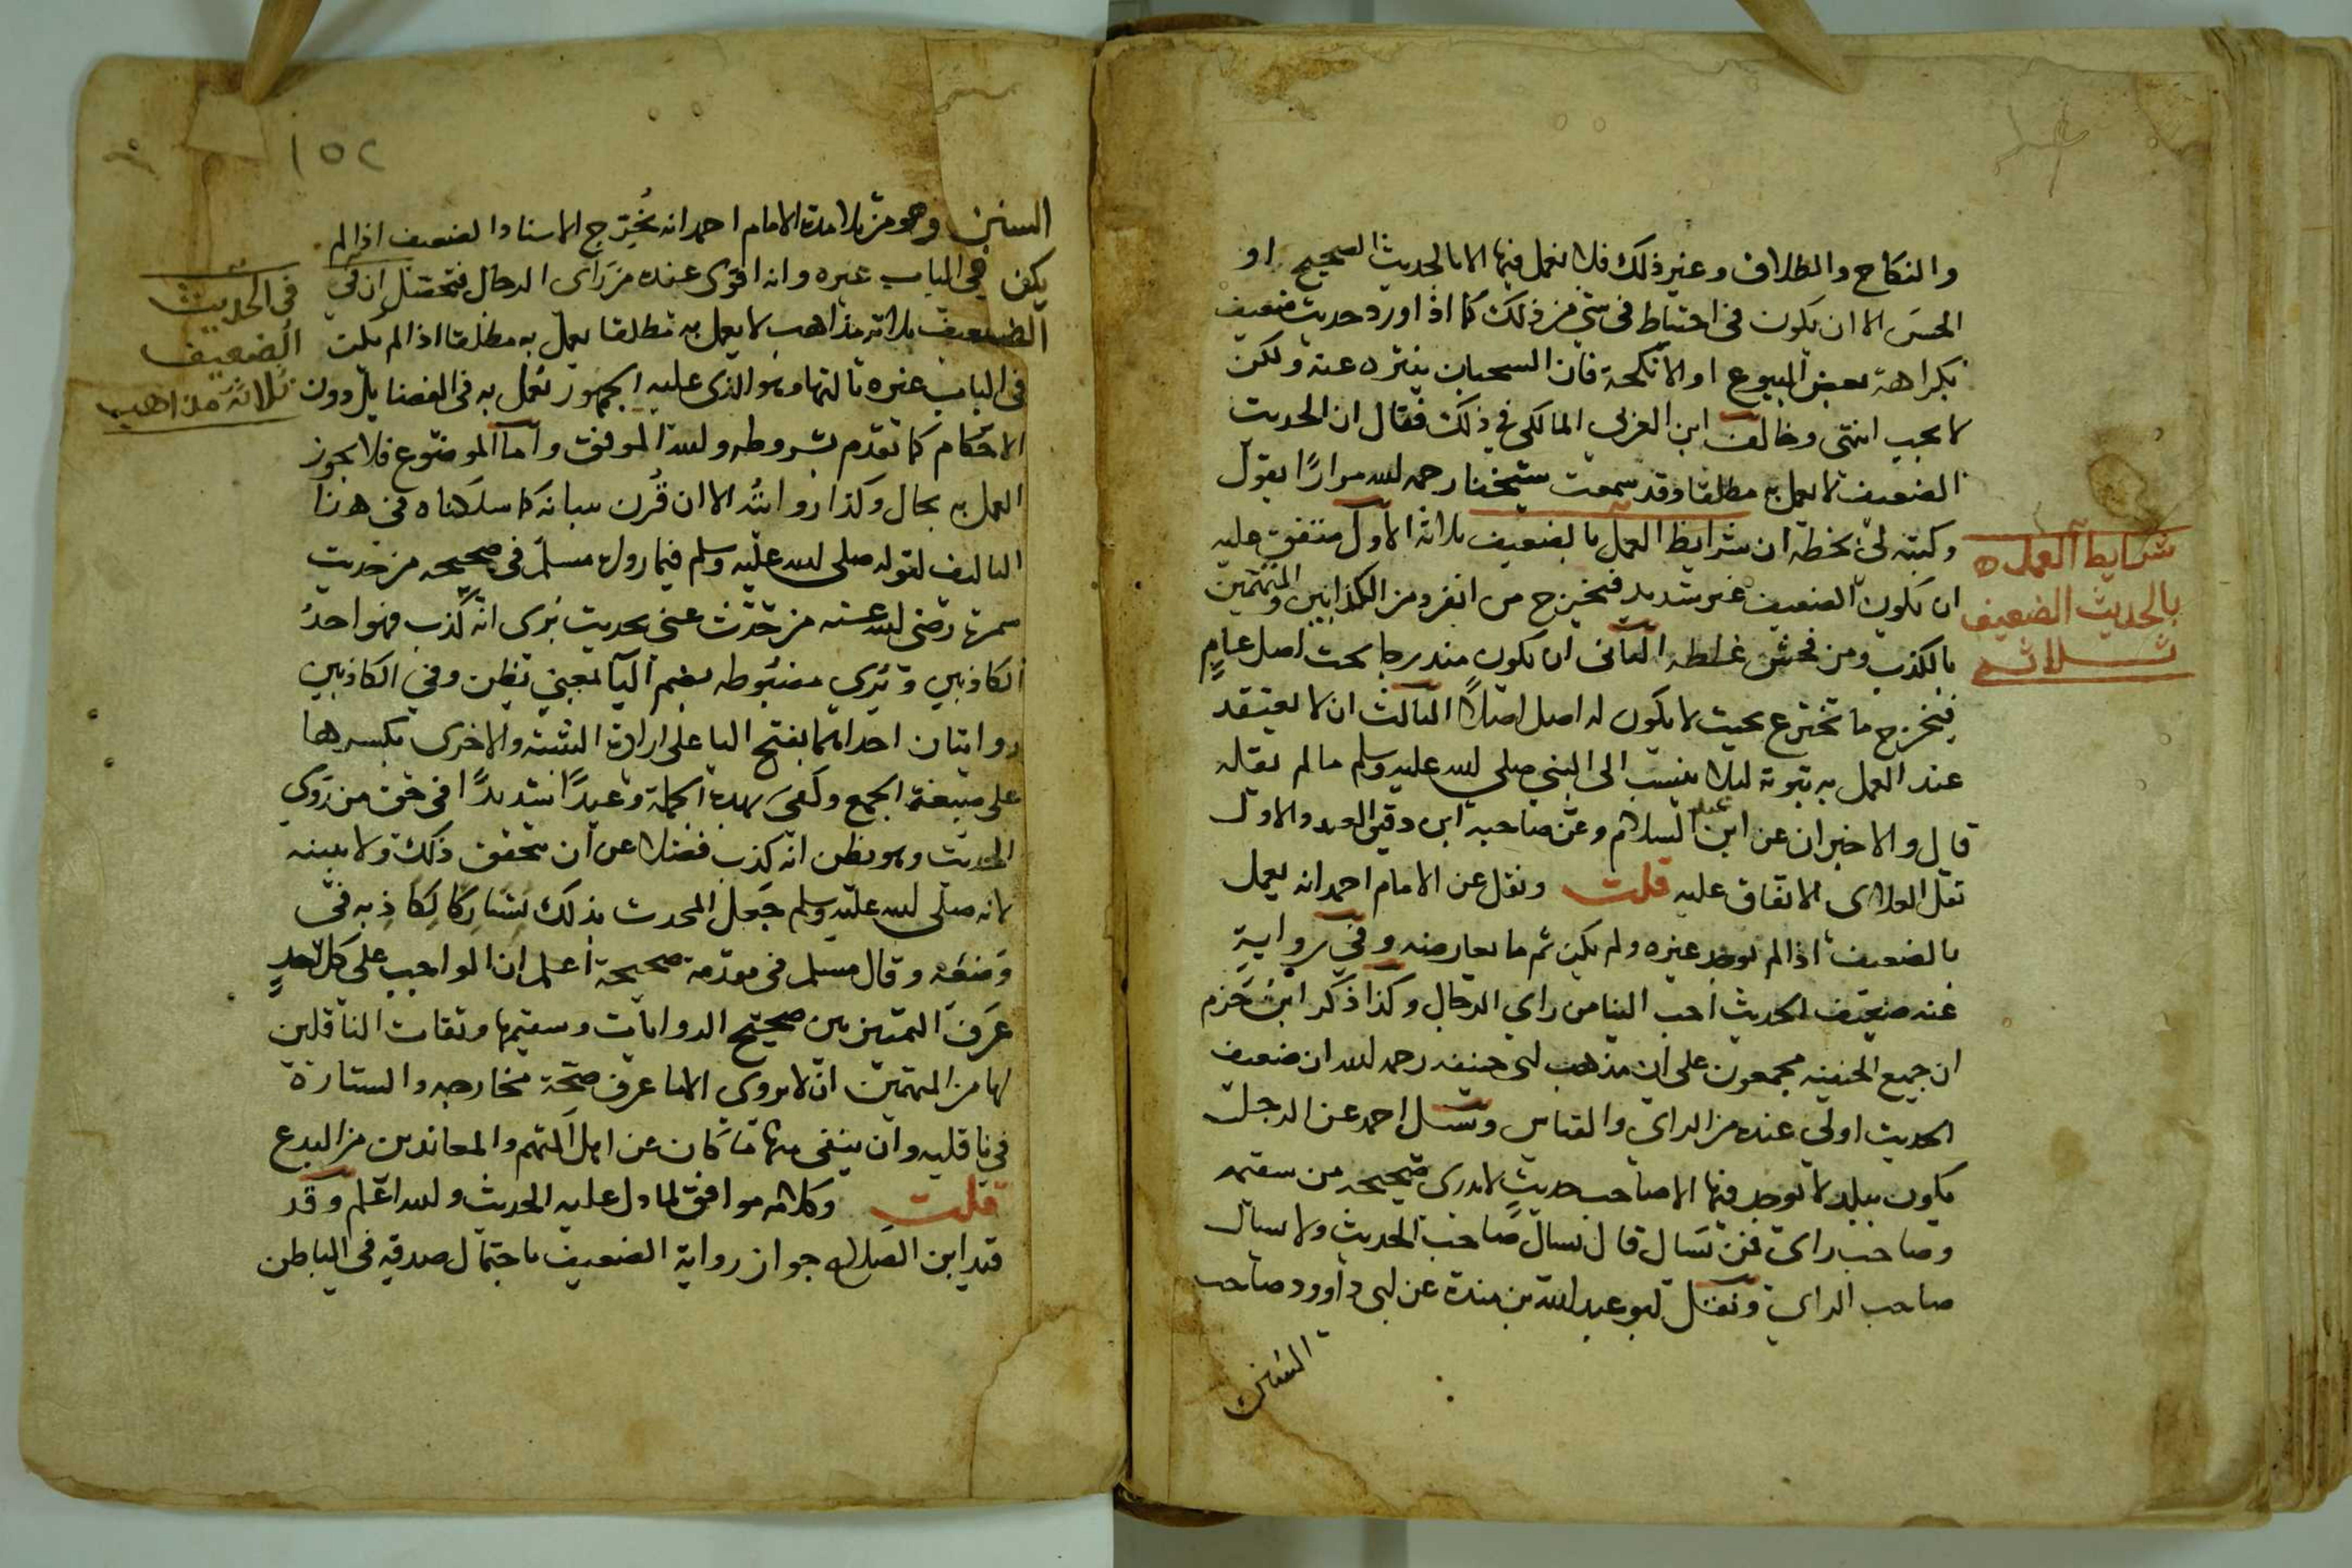 والنكاح والطلاق وغير ذلك فلا نعمل فيها الا بالحديث الصحيح او
الحسن الا ان يكون في احتياط في شي من ذلك كما اذا ورد حديث ضعيف
بكراهة بعض البيوع او الانكحة فان المستحبان يتنزه عنه ولكن
لا يجب انتهى وخالف ابن العربي المالكي في ذلك فقال ان الحديث
الضعيف لا يعمل به مطلقا وقد سمعت شيخنا رحمه الله مرارًا يقول
وكتبه لي بخطه ان شرايط العمل بالضعيف ثلاثة الاول متفق عليه
شرايط العمل
بالحديث الضعيف
ثلاثة
ان يكون الضعيف غير شديد فيخرج من انفرد من الكذابين والمتهمين
بالكذب ومن فحش غلطه الثاني ان يكون مندرجا تحت اصل عامٍ
فيخرج ما تخترع بحيث لا يكون له اصل اصلاً الثالث ان لا يعتقد
عند العمل به ثبوته ليلا ينسب الى النبي صلى الله عليه وسلم ما لم يقله
قال والاخيران عن ابن عبد السلام وعن صاحبه ابن دقيق العيد والاول
نقل العلائي الاتفاق عليه قلت ونقل عن الامام احمد انه يعمل
بالضعيف اذا لم يوجد غيره ولم يكن ثم ما يعارضه وفي رواية
عنه ضعيف الحديث احب الينا من راي الرجال وكذا ذكر ابن حَزم
ان جميع الحنفيه مجمعون على ان مذهب ابي حنيفه رحمه الله ان ضعيف
الحديث اولى عنده من الراي والقياس وسُئل احمد عن الرجل
يكون ببلد لا يوجد فيها الا صاحب حديثٍ لا يدري صحيحه من سقيمه
وصاحب راي فمن يَسال قال يسال صاحب الحديث ولا يسال
صاحب الراي ونقل ابو عبد الله بن مندة عن ابي داوود صاحب
السنن
١٥٢
السنن وهو من تلامدة الامام احمد انه يُخرج الاسناد الضعيف اذا لم
يكن في الباب غيره وانه اقوى عنده من رَاي الرجال فتحصل ان في
الضعيف ثلاثه مذاهب لا يعمل به مطلقا يعمل به مطلقا اذا لم يكن
في الباب غيره ثالثها وهو الذي عليه الجمهور يُعمل به في الفضايل دون
في الحديث
الضعيف
ثلاثة مذاهب
الاحكام كما تقدم بشروطه ولله الموفق واما الموضوع فلا يجوز
العمل به بحال وكذا روايتُه الا ان قُرن ببيانه كما سلكناه في هذا
التاليف لقوله صلى الله عليه وسلم فيما رواه مسلم في صحيحه من حديث
سمرة رضي الله عنه من حَدَّث عني بحديث يُرى انه كذب فهو احدُ
الكاذبين ويُرى مضبُوطه بضم اليا بمعنى يظن وفي الكاذبين
روايتان احداهما بفتح اليا على ارادة التثنيه والاخرى بكسرها
على صيغة الجمع وكَفى بهده الجملة وعيدًا شديدًا في حق من روى
الحديث وهو يظن انه كذب فضلا عن ان يتحقق ذلك ولا يبينه
لانه صلى الله عليه وسلم جَعل المحدث بذلك مُشارِكًا لِكاذِبه في
وَضعه وقال مسلم في مقدمة صحيحة اعلم ان الواجب على كل احدٍ
عَرَفَ التمييز بين صحيح الروايات وسقيمها وثقات الناقلين
لها من المتهمين ان لا يروي الا ما عرف صحة مخارجه والستارة
في ناقليه وان ينفى منها ما كان عن اهل التهم والمعاندين من البدع
قلت وكلامه موافق لما دل عليه الحديث ولله اعلم وقد
قيد ابن الصلاح جواز رواية الضعيف باحتمال صدقه في الباطن